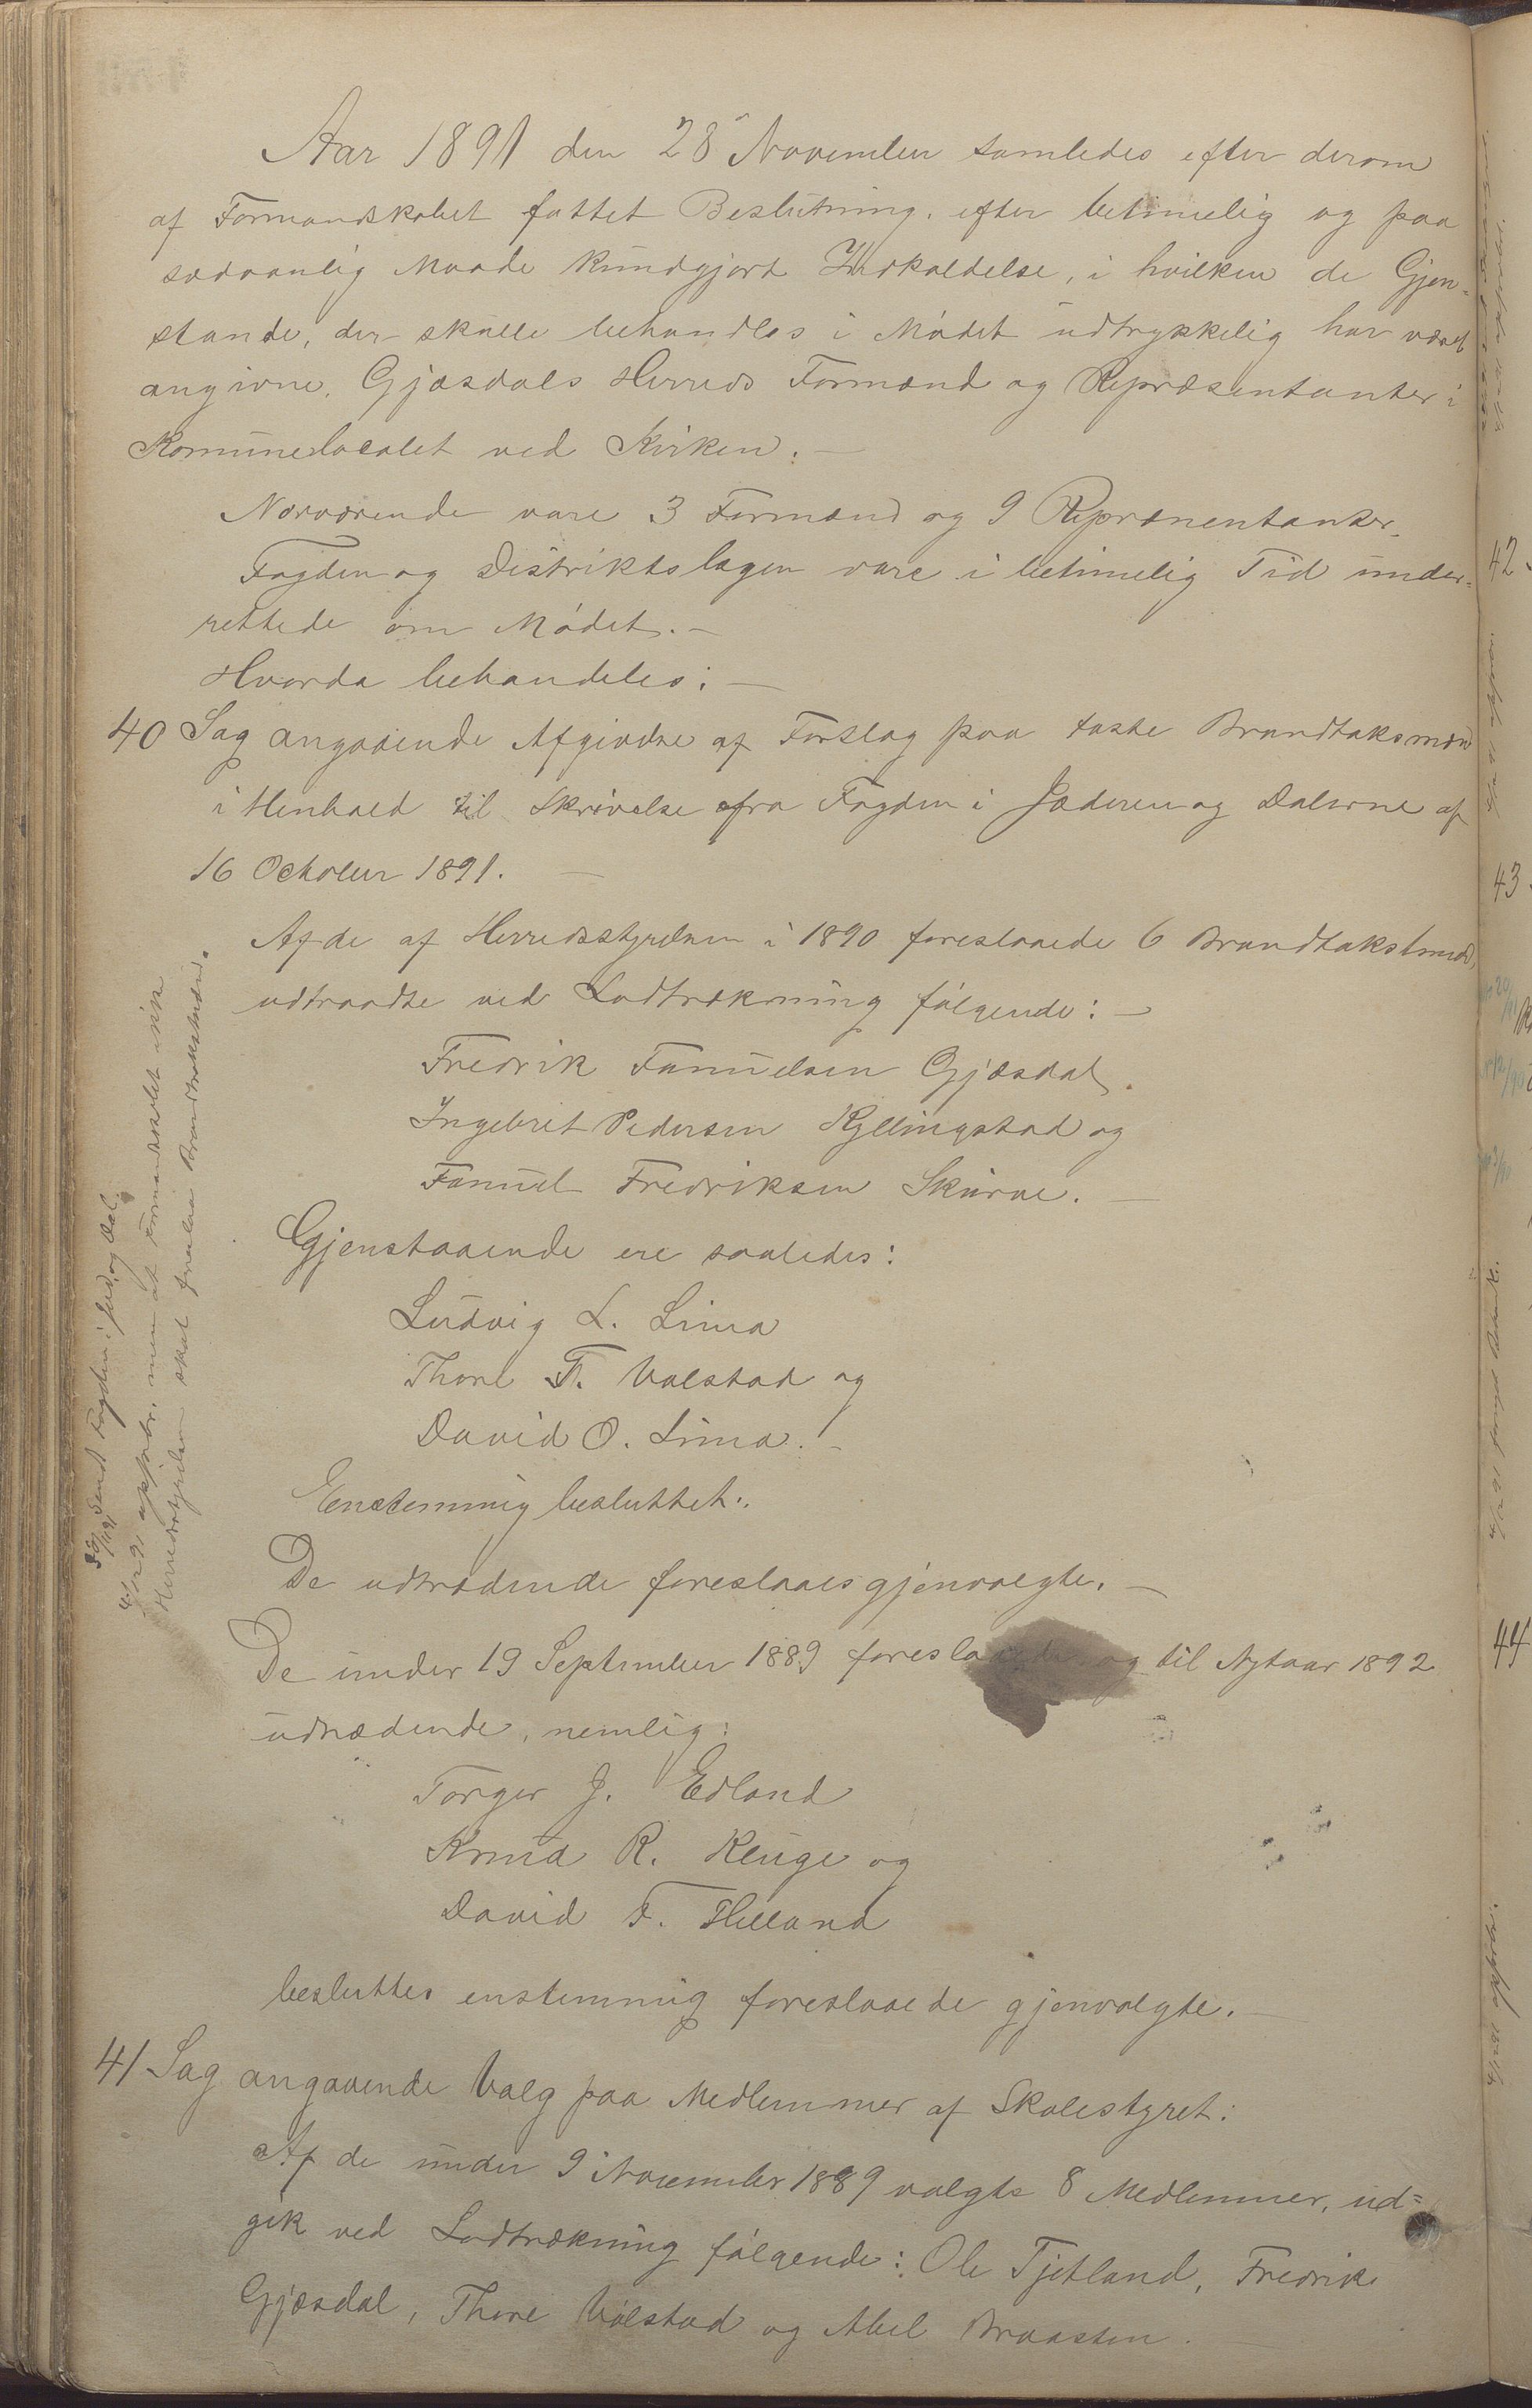 Aar 1891 den 28 November samledes efter derom
af Formandskabet fattet Beslutning, efter betimelig og paa
sædvanlig Maade kundgjord Indkaldelse, i hvilken de Gjen-
stande, der skulle behandles i Mødet udtrykkelig har været
angivne, Gjæsdals Herreds Formænd og Repræsentanter i
Komunelocalet ved Kirken. —
Nærværende vare 3 Formænd og 9 Repræsentanter.
Fogden og Distriktslægen vare i betimelig Tid under-
rettede om Mødet. —
Hvorda behandeles: —
40 Sag angaaende Afgivelse af Forslag paa faste Brandtaksmænd
i Henhold til Skrivelse fra Fogden i Jæderen og Dalerne af
16 October 1891. —
Af de af Herredsstyrelsen i 1890 foreslaaede 6 Brandtakstmænd,
udtraadte ved Lodtrækning følgende: —
Fredrik Tønnelsen Gjæsdal,
Ingebret Pedersen Kyllingstad og
Tønnel Fredriksen Skurve. —
Gjenstaaende ere saaledes:
Ludvig L. Lima
Thore T. Valstad og
David O. Lima. —
Enstemmig besluttet:
De udtrædende foreslaaes gjenvalgte. —
De under 19 September 1889 foreslaaede og til Nytaar 1892
udtrædende, nemlig:
Torger J. Edland
Knud R. Kluge og
David T. Helland
besluttes enstemmig foreslaaede gjenvalgte. —
41 Sag angaaende Valg paa Medlemmer af Skolestyret:
Af de under 9 November 1889 valgte 8 Medlemmer, ud-
gik ved Lodtrækning følgende: Ole Tjetland, Fredrik
Gjæsdal, Thore Valstad og Abel Braasten. —
30/11 91 Sendt Fogden i Jæd. og Dal.
4/12 91 approb. men at Formandskabet ikke
Herredsstyrelsen skal foreslaa Brandtakstmænd.
42
43
44